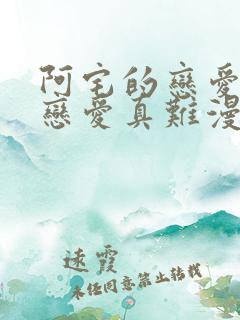 阿宅的戀愛
戀愛真難漫
遠霞
未經同意禁止轉載